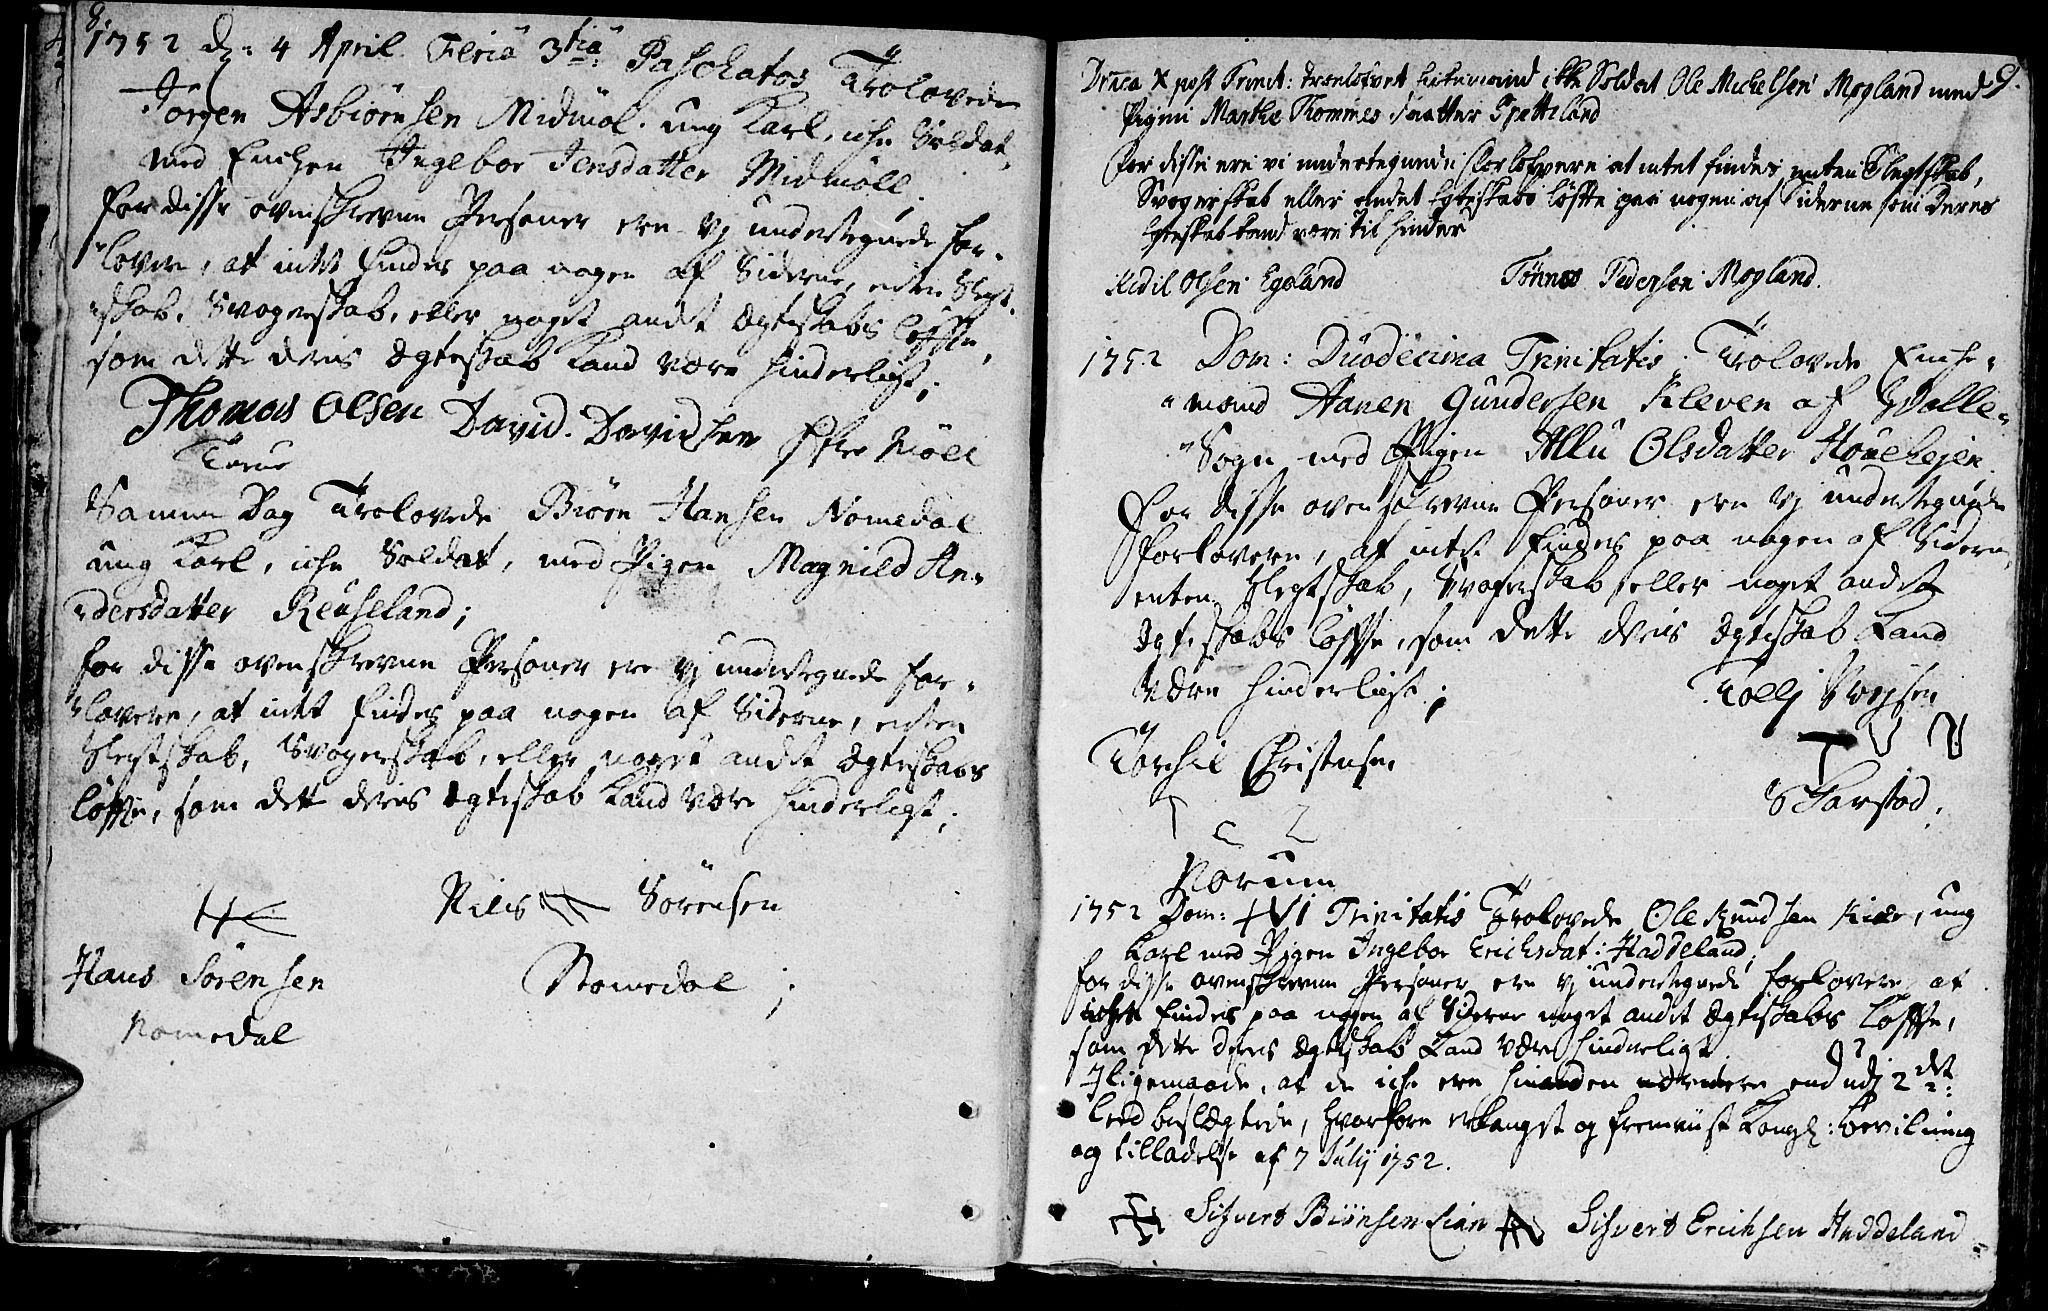 8.
1752 d: 4 April. Feria 3tia Paschatos Trolovede
Jörgen Asbiörnsen Midmöl. ung Karl, iche Soldat,
med Enchen Ingebor Jensdatter Midmöll;
for disse ovenskrevne Personer ere vj undertegnede for-
lovere, at intet findes paa nogen af Siderne, enten Slegt-
skab, Svogerskab, eller noget andet Ægteskabs løffte,
som dette deris Ægteskab kand være hinderligt;
Thomas Olsen David Davidsen Øfre Möll
Samme Dag Trolovede Biörn Hansen Nomedal
ung Karl, iche Soldat, med Pigen Magnild An-
dersdatter Reuseland;
for disse ovenskrevne Personer ere vj undertegnede for-
lovere, at intet findes paa nogen af Siderne, enten
Slegtskab, Svogerskab, eller noget andet Ægteskabs
løffte, som dette deris Ægteskab kand være hinderligt;
Niels Sörensen
Hans Sörensen Nomedal;
Nomedal
9.
X post Trinit: trolofvet ikke Soldat Ole Michelsen Mogland med
Pigen Marthe Tommes daatter Spetteland
For disse ere vi undertegnede Forlofvere at intet findes, enten Slegtskab,
Svogerskab eller andet Egteskabs löffte paa nogen af Siderne som deres
Egteskab kand være til hinder
Kidil Olsen Egeland Tönnes Pederson Mogland.
1752 Dom: Duodecima Trinitatis. Trolovede Enche-
mand Aanen Gundersen Kleven af Walle-
Sogn med Pigen Allu Olsdatter Houehejen.
For disse ovenskrevne Personer ere vj undertegnede
Forlovere, at intet findes paa nogen af Siderne,
enten Slegtskab, Svogerskab, eller noget andet
Ægteskabs løffte, som dette deris Ægteskab kand
være hinderligt;
Tollj
Torchil Christensen
Skarstöd.
T C Z
Norum
1752 Dom: XVI Trinitatis Trolovede Ole Knudsen, ung
Karl med Pigen Ingebor Erichsdat: Haddeland;
for disse ovenskrevne Personer ere vj undertegnede forlovere, at
intet findes paa nogen af Siderne noget andet Ægteskabs løffte,
som dette deris Ægteskab kand være hinderligt.
Iligemaade, at de iche ere hinanden end udj 2det
Leed beslægtede, hvorfore erlanget og fremviist Kongl: bevilning
og tilladelse af 7 Julij 1752.
Sifvert Biönsen Lian Sifvert Erichsen Haddeland